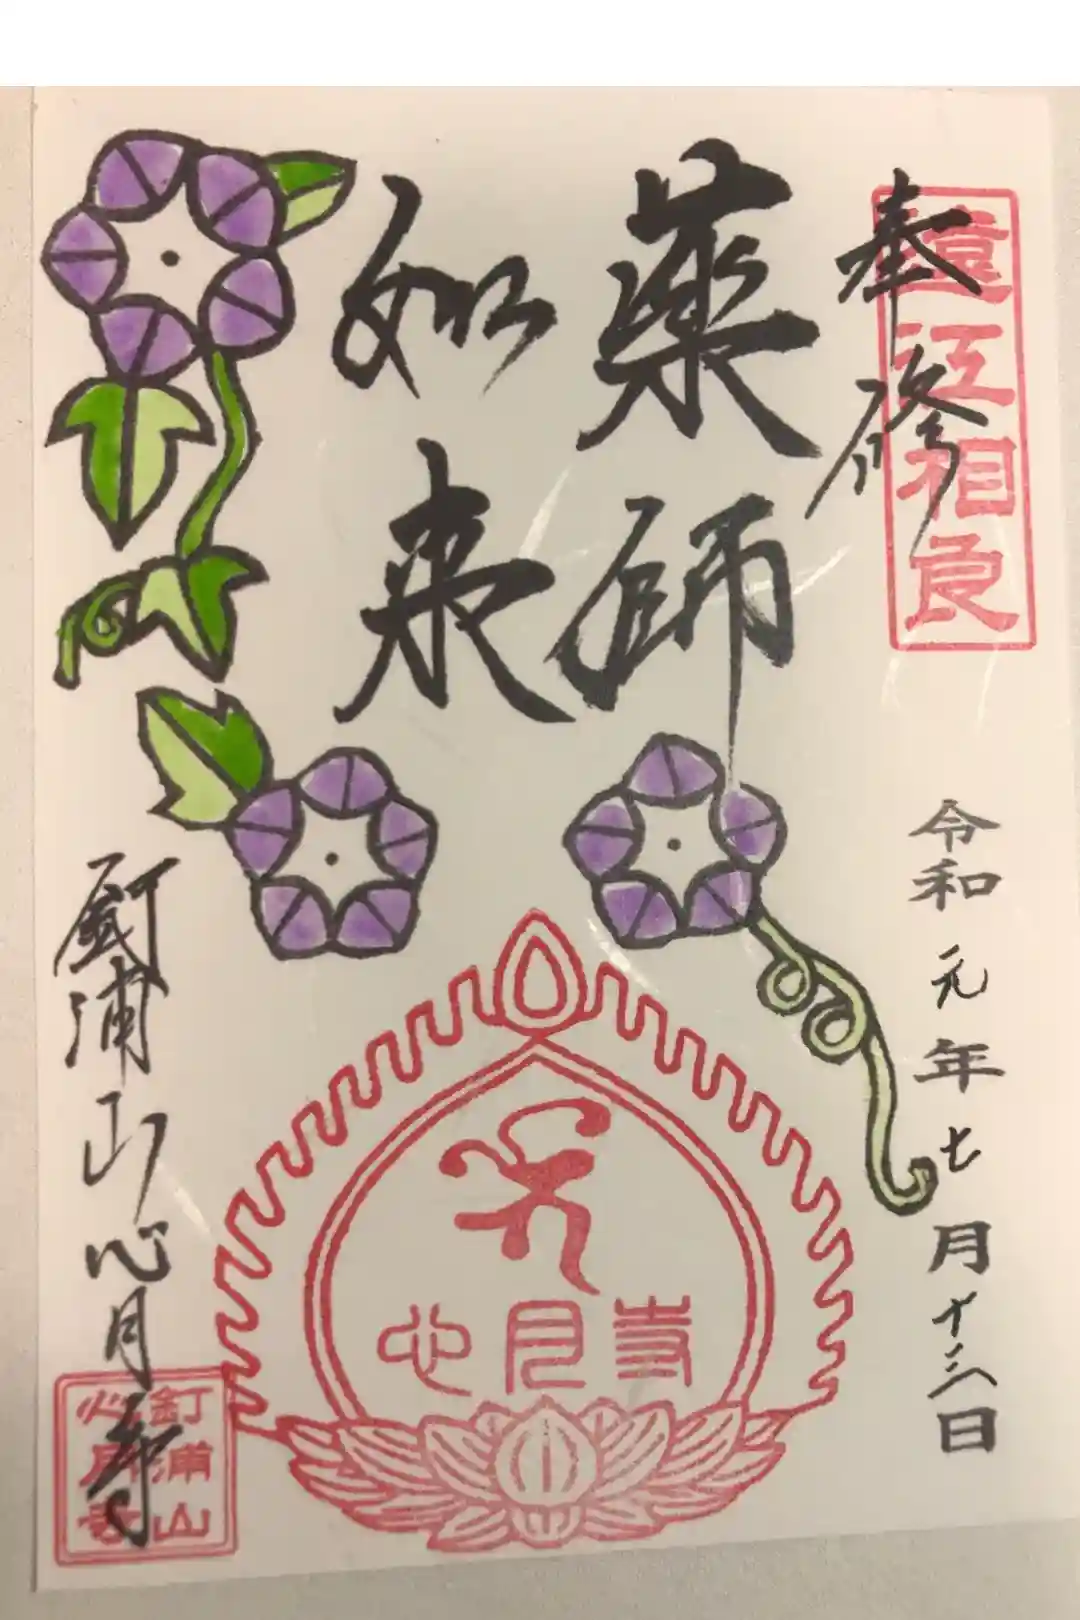 奉修
遠江相良
薬師
如来
令和元年七月十三日
心月寺
釘浦山心月寺
釘浦山
心月寺